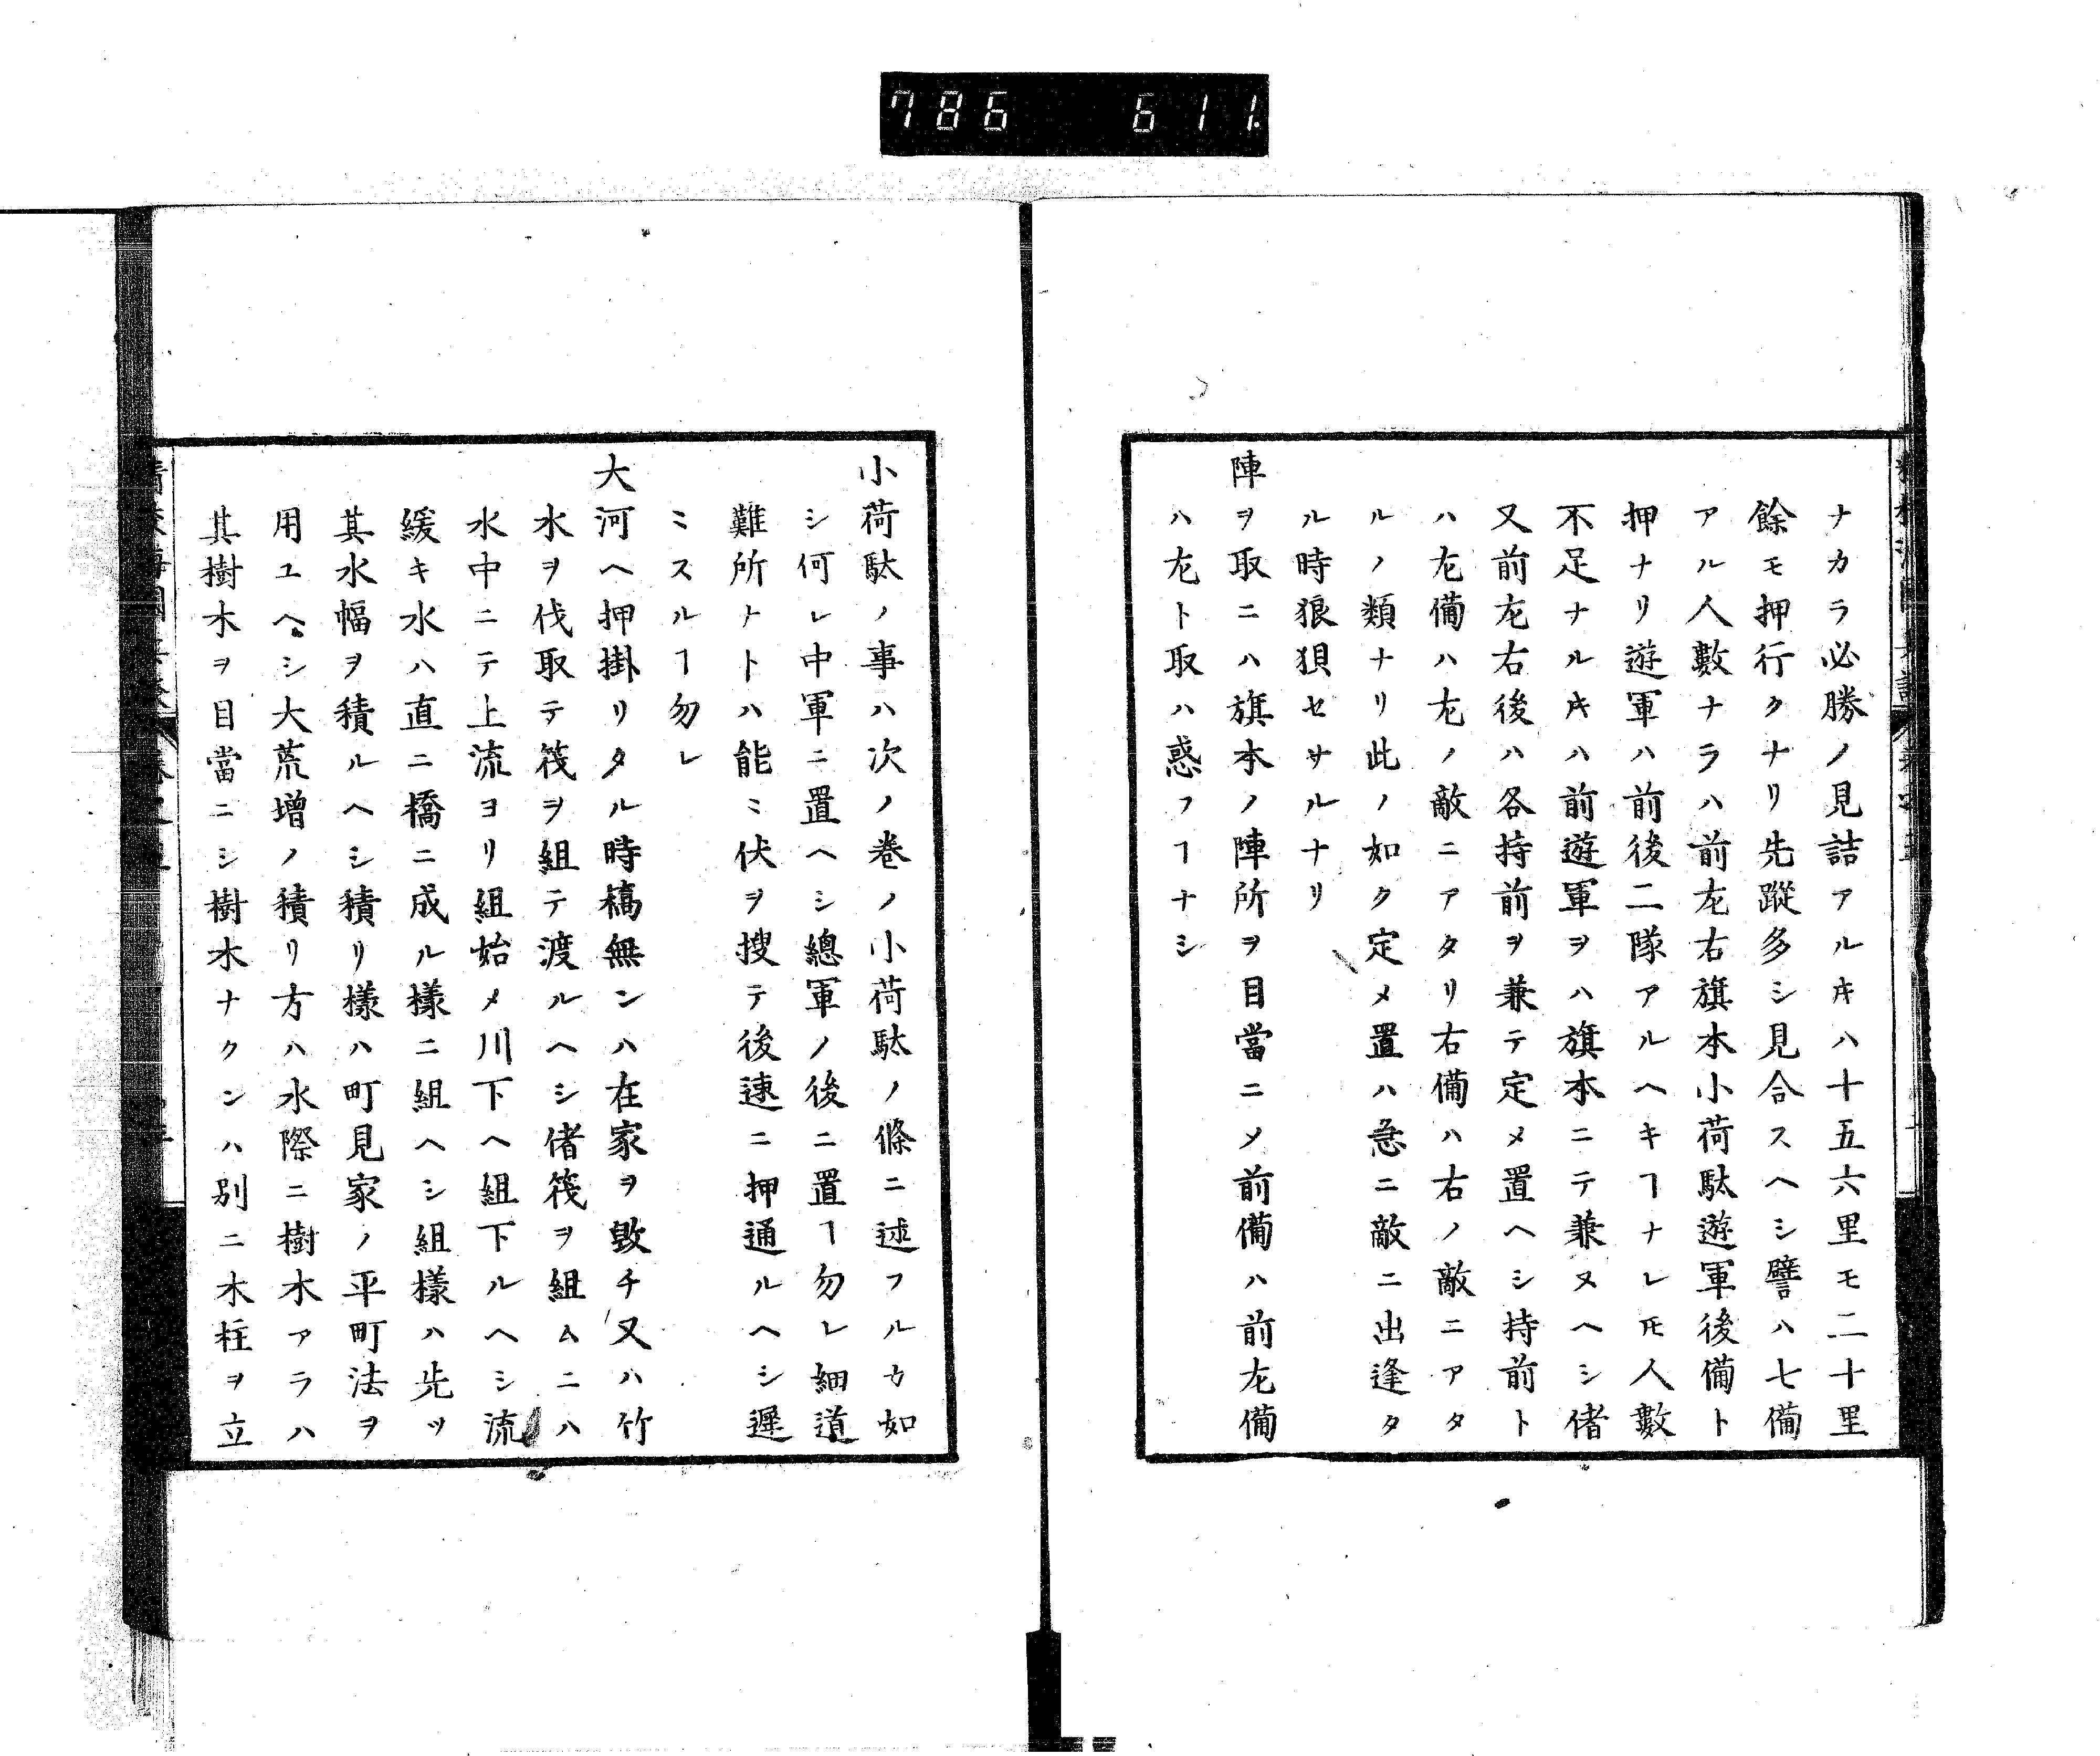 786 611
ナカラ必勝ノ見詰アルキハ十五六里モ二十里
餘モ押行クナリ先蹤多シ見合スヘシ譬ハ七備
アル人數ナラハ前左右旗本小荷駄遊軍後備ト
押ナリ遊軍ハ前後二隊アルヘキヿナレ𪜈人數
不足ナルキハ前遊軍ヲハ旗本ニテ兼ヌヘシ偖
又前左右後ハ各持前ヲ兼テ定メ置ヘシ持前ト
ハ左備ハ左ノ敵ニアタリ右備ハ右ノ敵ニアタ
ルノ類ナリ此ノ如ク定メ置ハ急ニ敵ニ出逢タ
ル時狼狽セサルナリ
陣ヲ取ニハ旗本ノ陣所ヲ目當ニメ前備ハ前左備
ハ左ト取ハ惑フヿナシ
小荷駄ノ事ハ次ノ巻ノ小荷駄ノ條ニ述フルカ如
シ何レ中軍ニ置ヘシ總軍ノ後ニ置ヿ勿レ細道
難所ナトハ能ミ伏ヲ搜テ後速ニ押通ルヘシ遲
ミスルヿ勿レ
大河ヘ押掛リタル時橋無ンハ在家ヲ毀チ又ハ竹
水ヲ伐取テ筏ヲ組テ渡ルヘシ偖筏ヲ組ムニハ
水中ニテ上流ヨリ組始メ川下ヘ組下ルヘシ流
緩キ水ハ直ニ橋ニ成ル樣ニ組ヘシ組樣ハ先ツ
其水幅ヲ積ルヘシ積リ樣ハ町見家ノ平町法ヲ
用ユヘシ大荒増ノ積リ方ハ水際ニ樹木アラハ
其樹木ヲ目當ニシ樹木ナクンハ別ニ木柱ヲ立